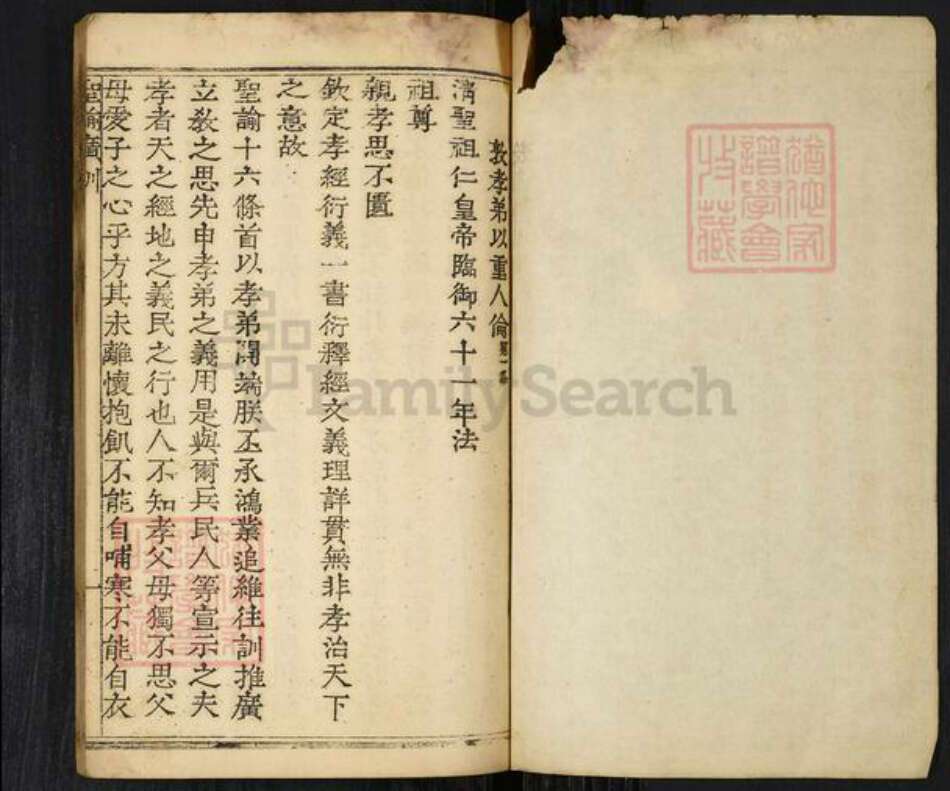 敦孝弟以重人倫第一條
清聖祖仁皇帝臨御六十一年法
祖尊
親孝思不匱
欽定孝經衍義一書衍釋經文義理詳貫無非孝治天下
之意故
聖諭十六條首以孝弟開端朕丕承鴻業追維往訓推廣
立教之思先申孝弟之義用是與爾兵民人等宣示之夫
孝者天之經地之義民之行也人不知孝父母獨不思父
母愛子之心乎方其未離懷抱飢不能自哺寒不能自衣
聖諭廣訓
一
譜學會
收藏
FamilySearch